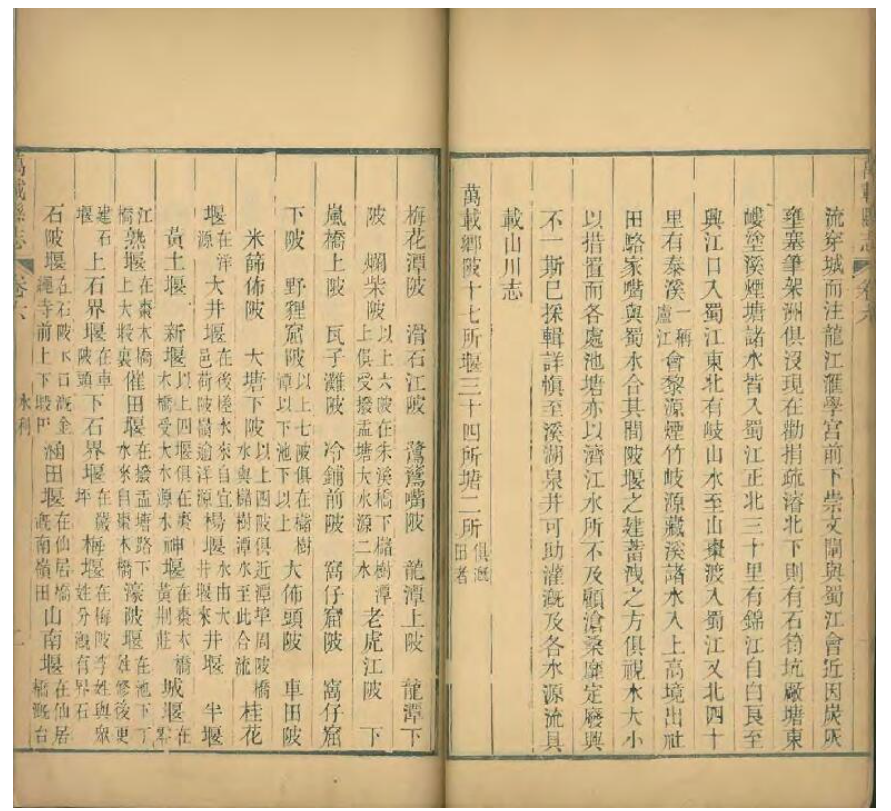 流穿城而注龍江滙學宫前下崇文閘與蜀江會近因炭灰
壅塞筆架洲俱沒現在勸捐疏濬北下則有石筍坑厰塘東
㟺塗溪煙塘諸水皆入蜀江正北三十里有錦江自白良至
興江口入蜀江東北有岐山水至山棗渡入蜀江又北四十
里有泰溪一稱盧江會黎源煙竹岐源藏溪諸水入上高境出祉
田駱家嘴與蜀水合其間陂堰之建蓄洩之方俱視水大小
以措置而各處池塘亦以濟江水所不及顧滄桑靡定廢興
不一斯已採輯詳慎至溪湖泉井可助灌溉及各水源流具
載山川志
萬載鄉陂十七所堰三十四所塘二所俱溉田者
萬載縣志
卷六
水利
梅花潭陂 滑石江陂 鷺鷥嘴陂 龍潭上陂 龍潭下
陂 爛柴陂以上六陂在朱溪橋下櫧樹潭上俱受撥盂塘大水源二水 老虎江陂 下
嵐橋上陂 瓦子灘陂 冷鋪前陂 窩仔窟陂 窩仔窟
下陂 野狸窟陂以上七陂俱在櫧樹潭以下池下以上 大佈頭陂 車田陂
米篩佈陂 大塘下陂以上四陂俱近潭埠周陂橋水與櫧樹潭水至此合流 桂花
堰在洋源 大井堰在後塍水來自宜邑荷陂嶺逾洋源 楊堰水由大井堰來 井堰 半堰
黃土堰 新堰以上四堰俱在棗木橋受大水源水 神堰在棗木橋黃荆莊 城堰在零
江 熟堰在棗木橋橋上大塅裏 催田堰在撥盂塘路下水來自棗木橋 濠陂堰在池下丁姓修後更
建石堰 上石界堰在車陂頭 下石界堰在嚴坪 梅堰在梅陂李姓與眾姓分溉有界石
石陂堰在石陂下口溉金繩寺前上下塅田 涵田堰在仙居橋溉南嶺田 山南堰在仙居橋溉台